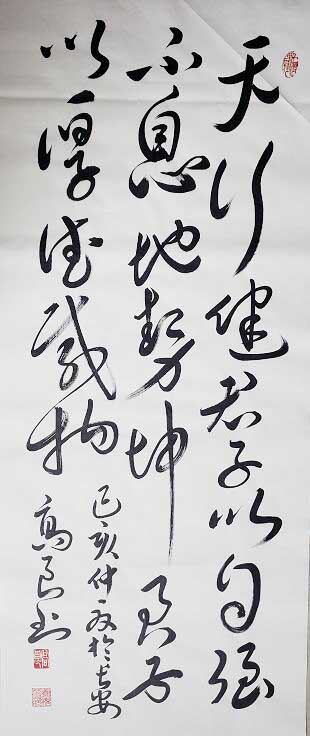 天行健君子以自强
不息地勢坤君子
以厚德載物
己亥仲夏於長安
高良書